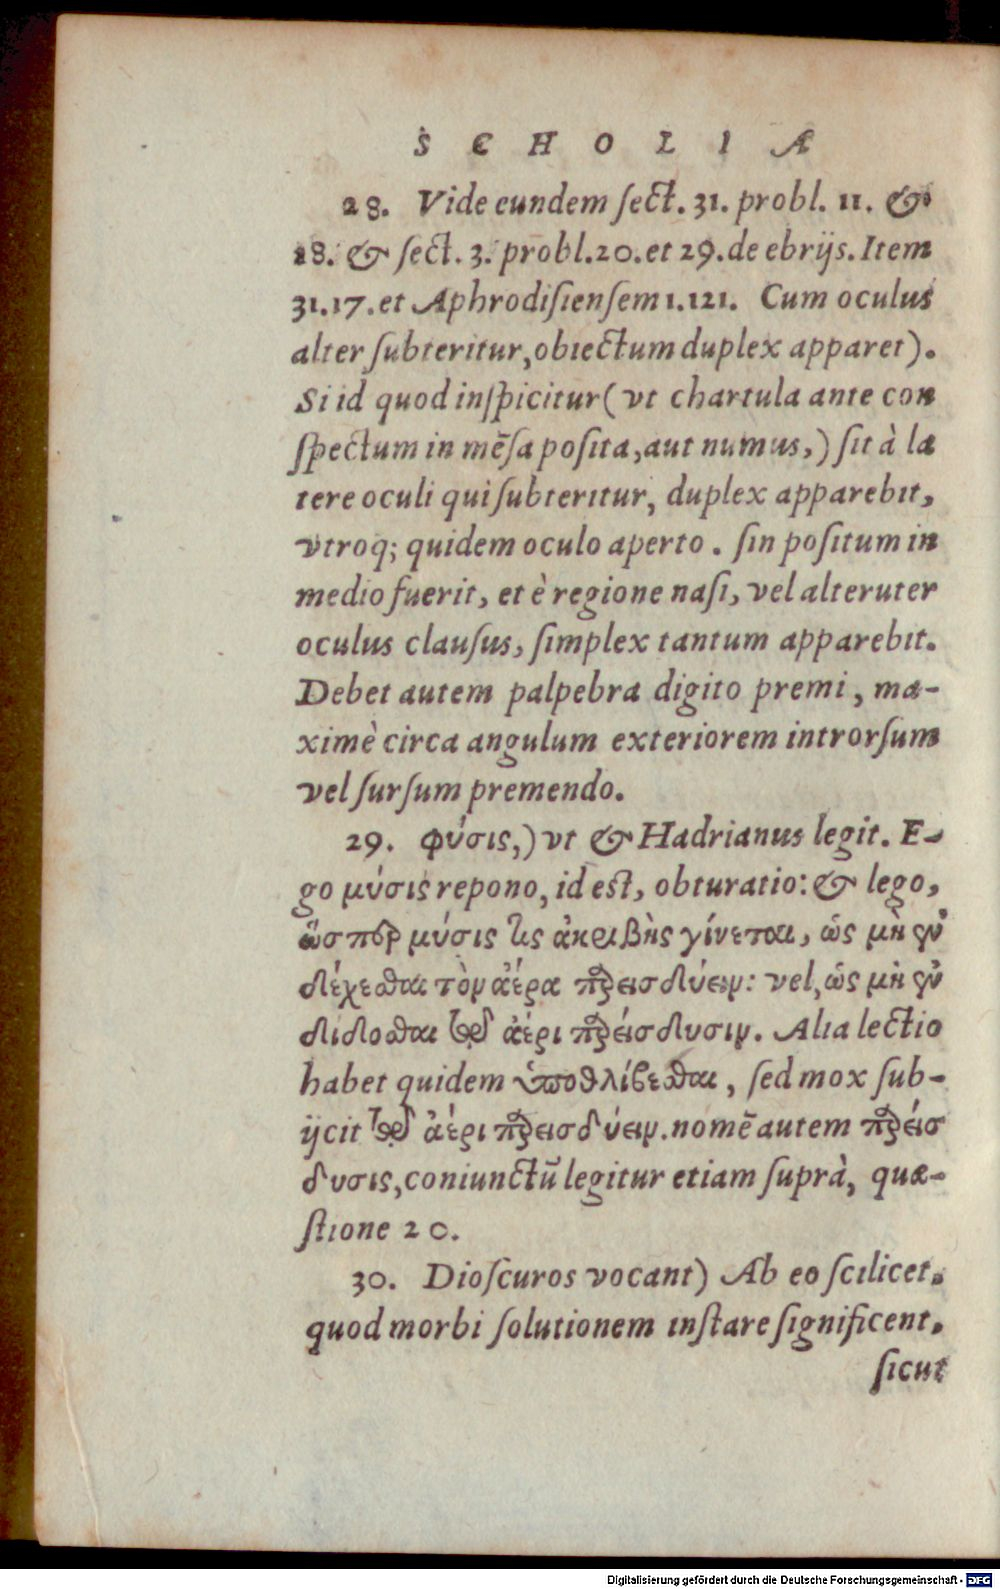 SCHOLIÆ
28. Vide eundem ſect. 31. probl. 11. &
28. & ſect. 3. probl. 20. et 29. de ebrijs. Item
31. 17. et Aphrodiſienſem 1. 121. Cum oculus
alter ſubteritur, obiectum duplex apparet).
Si id quod inſpicitur (vt chartula ante con
ſpectum in mēſa poſita, aut numus,) ſit à la
tere oculi qui ſubteritur, duplex apparebit,
vtroq; quidem oculo aperto. ſin poſitum in
medio fuerit, et è regione naſi, vel alteruter
oculus clauſus, ſimplex tantum apparebit.
Debet autem palpebra digito premi, ma-
ximè circa angulum exteriorem introrſum
vel ſurſum premendo.
29. φύσις,) vt & Hadrianus legit. E-
go μύσις repono, id est, obturatio: & lego,
ὥσπερ μύσις τις ἀκριβὴς γίνεται, ὡς μὴ
δέχεσθαι τὸν ἀέρα παρεισδύειν: vel, ὡς μὴ
δίδοσθαι τῷ ἀέρι παρείσδυσιν. Alia lectio
habet quidem ὑποθλίβεσθαι, ſed mox ſub-
ijcit τῷ ἀέρι παρεισδύειν. nomē autem παρείσ
δυσις, coniunctū legitur etiam ſuprà, quæ-
ſtione 20.
30. Dioſcuros vocant) Ab eo ſcilicet,
quod morbi ſolutionem inſtare ſignificent,
ſicut
Digitalisierung gefördert durch die Deutsche Forschungsgemeinschaft - DFG